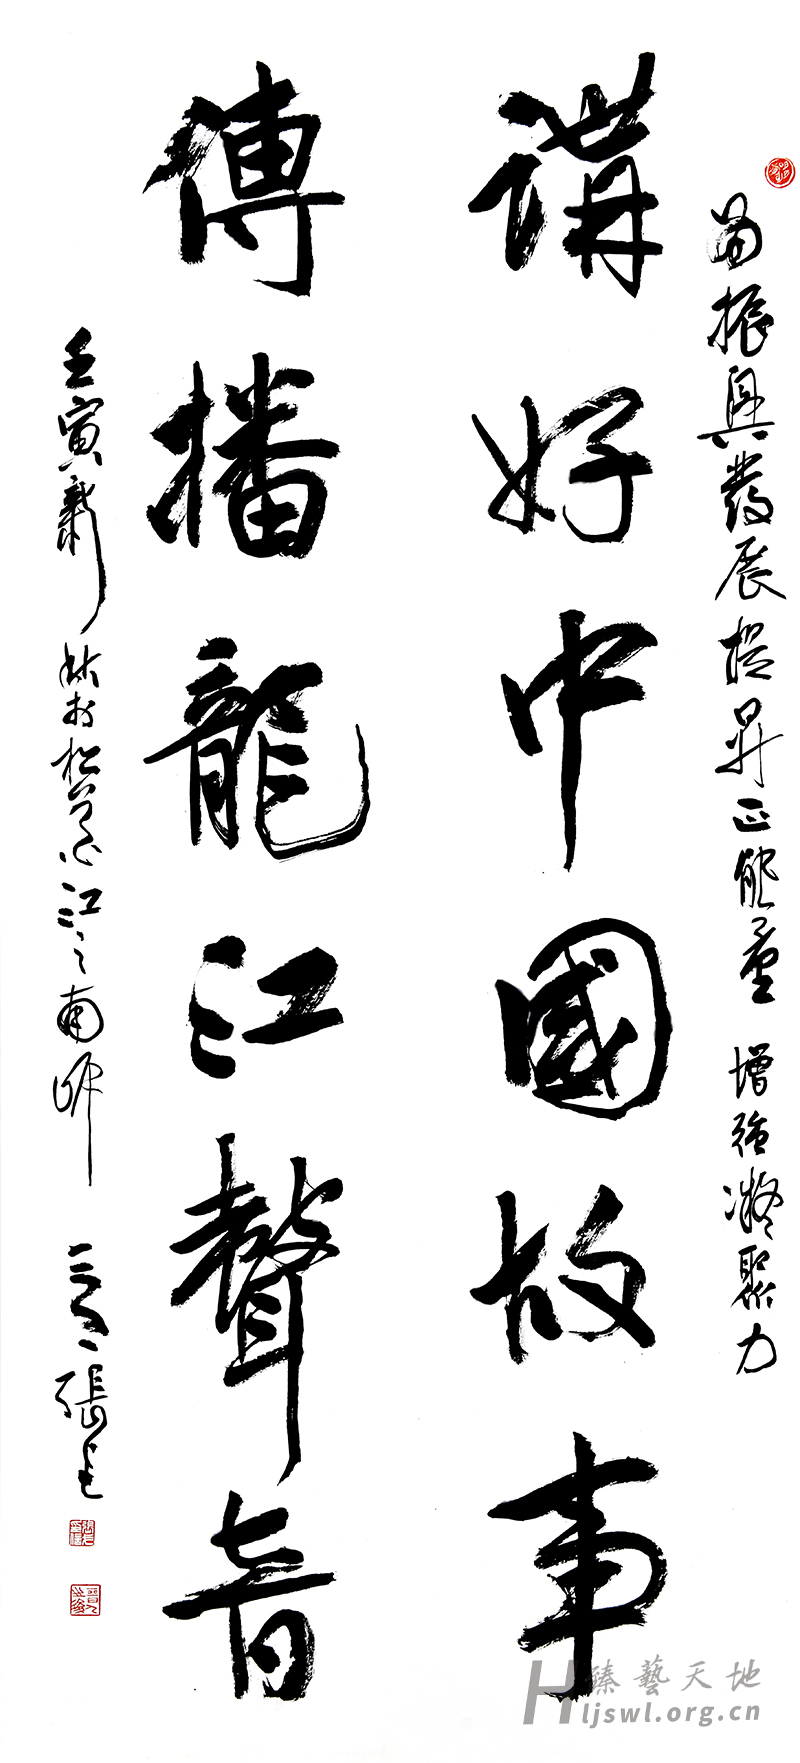 振興發展提昇正能量增強凝聚力
講好中國故事
傳播龍江聲音
壬寅新秋於松 江之南岸 張
臻藝天地
Hljswl.org.cn